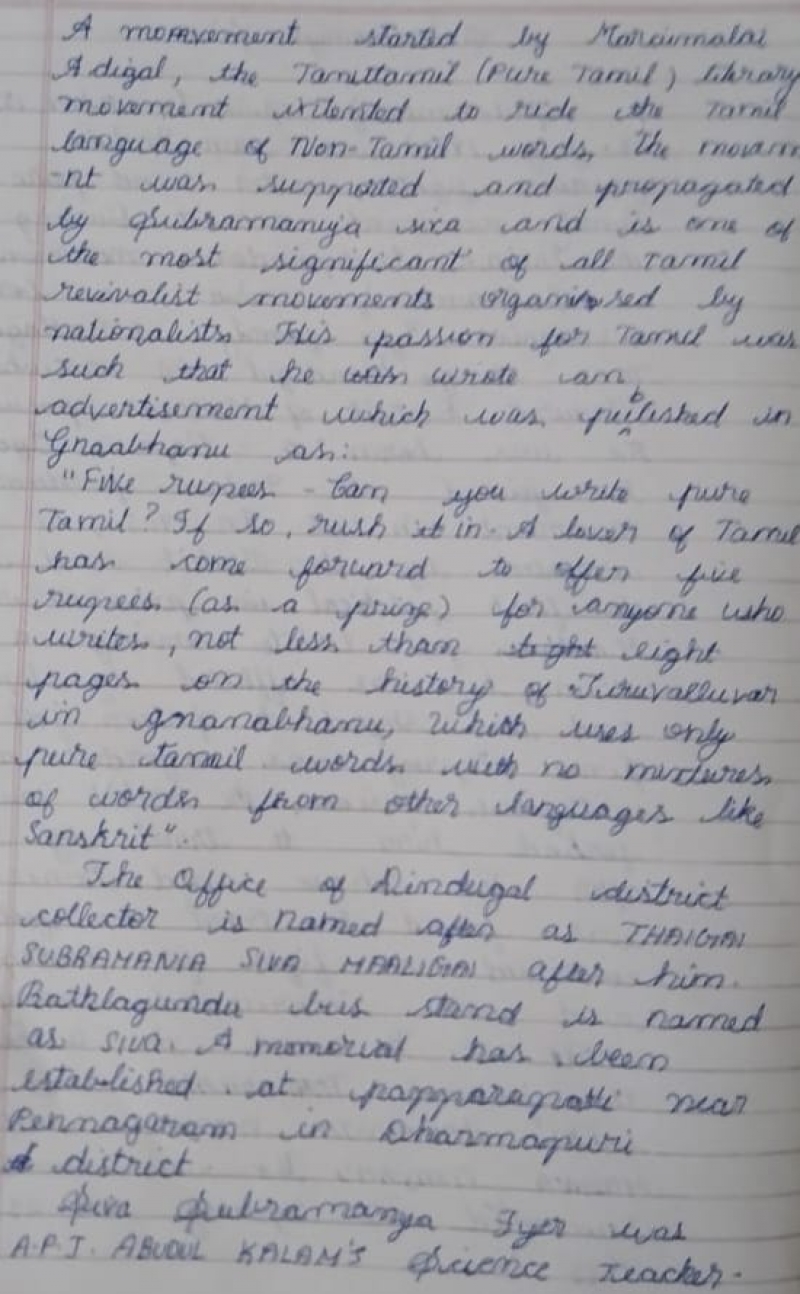 A momvement started by Maraimalai
Adigal, the Tanittamil (Pure Tamil) library
movement intented to ride the Tamil
language of Non-Tamil words, the movem
-nt was supported and propagated
by Subramaniya siva and is one of
the most significant of all Tamil
revivalist movements organised by
nationalists. His passion for Tamil was
such that he was wrote an
advertisement which was published in
Gnaabhanu as:
"Five rupees - Can you write pure
Tamil? If so, rush it in. A lover of Tamil
has come forward to offer five
rupees (as a prize) for anyone who
writes, not less than eight
pages on the history of Tiruvalluvar
in gnanabhanu, which uses only
pure tamil words with no mixtures
of words from other languages like
Sanskrit".
The Office of Dindugal district
collector is named after as THAIGAI
SUBRAMANIA SIVA MAALIGAI after him.
Bathlagundu bus stand is named
as siva. A momorial has been
established at papparapatti near
Pennagaram in Dharmapuri
district
Siva Subramanya Iyer was
A.P.J. ABUDUL KALAM'S Science teacher.